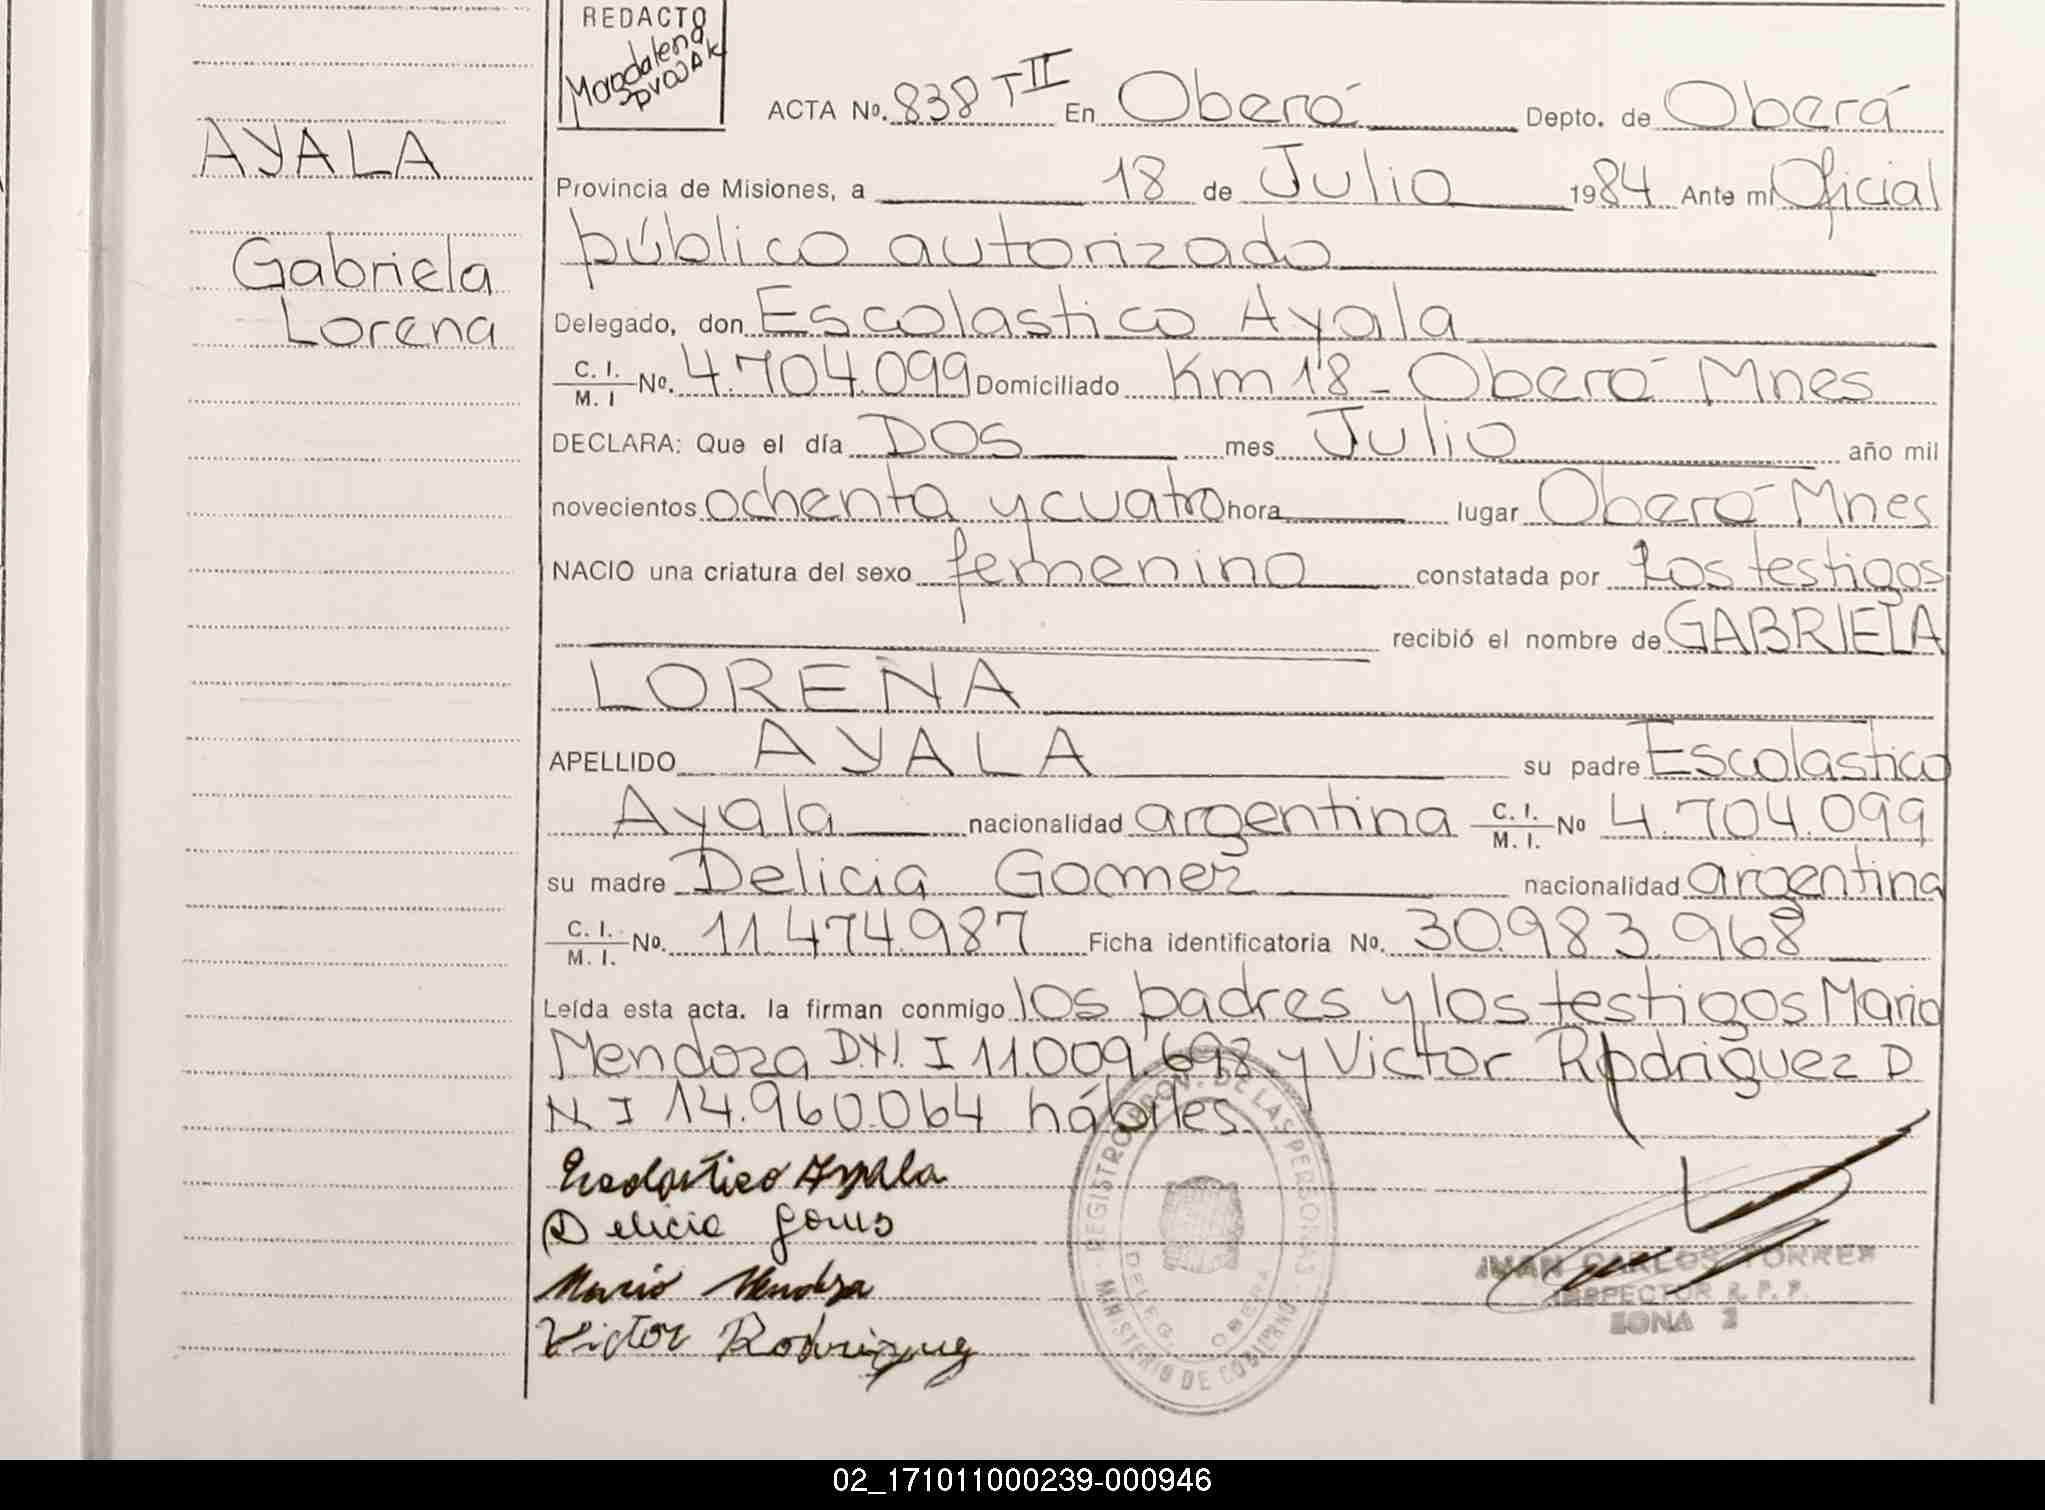 REDACTO
Magdalena
ACTA No. 838 TII En Oberá Depto. de Oberá
AYALA
Provincia de Misiones, a 18 de Julio 1984 Ante mi Oficial
público autorizado
Gabriela
Lorena
Delegado, don Escolastico Ayala
C. I. / M. I No. 4.704.099 Domiciliado Km 18 - Oberá Mnes
DECLARA: Que el día DOS mes Julio año mil
novecientos ochenta y cuatro hora lugar Oberá Mnes
NACIO una criatura del sexo femenino constatada por los testigos
recibió el nombre de GABRIELA
LORENA
APELLIDO AYALA su padre Escolastico
Ayala nacionalidad argentina C. I. / M. I. No 4.704.099
su madre Delicia Gomez nacionalidad argentina
C. I. / M. I. No. 11.474.987 Ficha identificatoria No. 30.983.968
Leída esta acta. la firman conmigo los padres y los testigos Mario
Mendoza D.N.I 11.009.698 y Victor Rodriguez D
N I 14.960.064 hábiles.
Escolastico Ayala
Delicia
Mario Mendoza
Victor Rodriguez
REGISTRO PROV. DE LAS PERSONAS
MINISTERIO DE GOBIERNO
DELEG. OBERA
JUAN CARLOS TORRES
INSPECTOR R. P. P.
ZONA 2
02_171011000239-000946